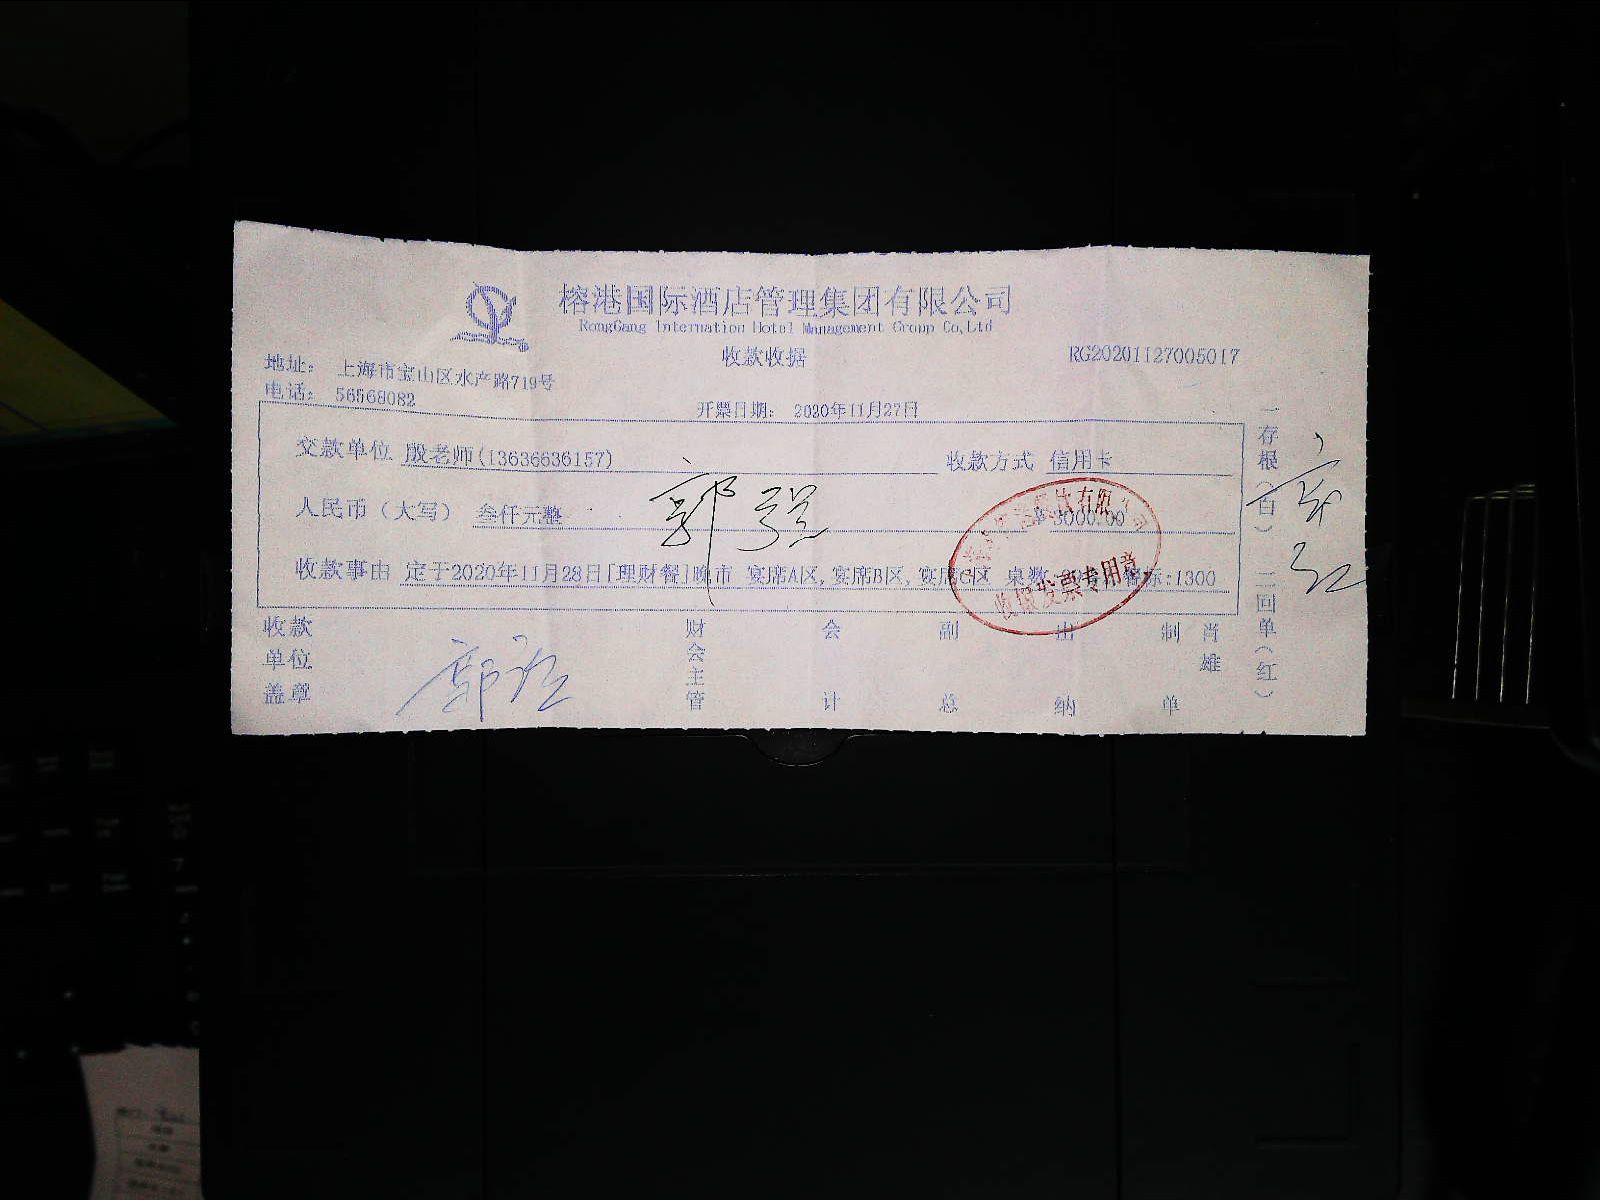 榕港国际酒店管理集团有限公司
RongGang Internation Hotel Management Group Co,Ltd
收款收据
RG20201127005017
地址： 上海市宝山区水产路719号
电话： 56568082
开票日期： 2020年11月27日
交款单位 殷老师(13636636157) 收款方式 信用卡
人民币（大写） 叁仟元整 ¥ 3000.00
郭强
收款事由 定于2020年11月28日「理财餐」晚市 宴席A区,宴席B区,宴席C区 桌数 餐标:1300
餐饮有限
收据发票专用章
收款单位盖章
财会主管
会计
副总
出纳
制单 肖雄
一存根（白） 二回单（红）